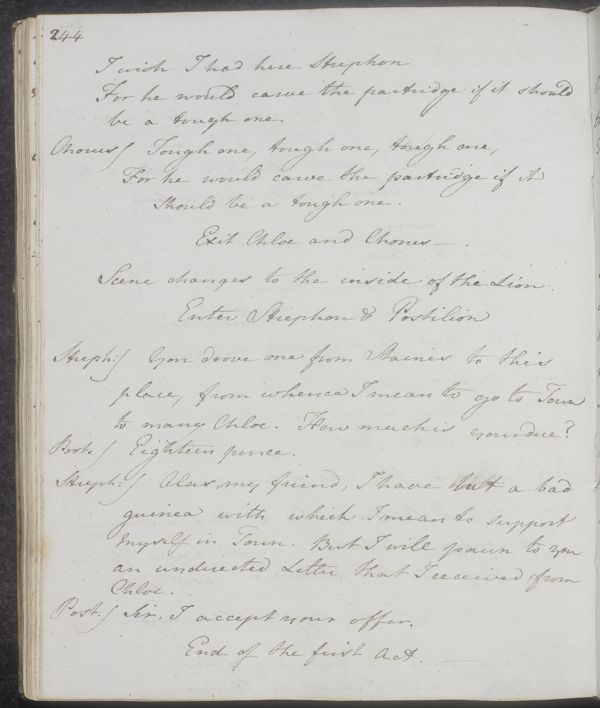 244
I wish I had here Strephon
For he would carve the partridge if it should
be a tough one.
Chorus/ Tough one, tough one, tough one,
For he would carve the partridge if it
should be a tough one.
Exit Chloe and Chorus —.
Scene changes to the inside of the Lion.
Enter Strephon & Postilion
Streph:/ You drove me from Staines to this
place, from whence I mean to go to Town
to marry Chloe. How much is your due?
Post:/ Eighteen pence.
Streph:/ Alas, my friend, I have but a bad
guinea with which I mean to support
myself in Town. But I will pawn to you
an undirected Letter that I received from
Chloe.
Post:/ Sir, I accept your offer.
End of the first Act.